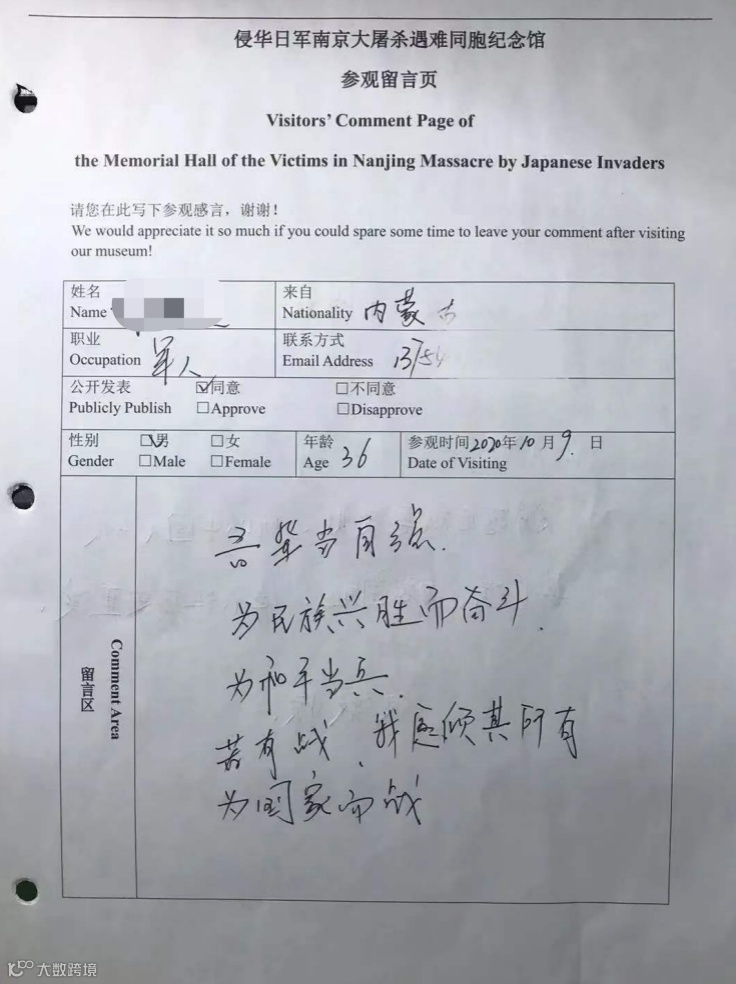 侵华日军南京大屠杀遇难同胞纪念馆
参观留言页
Visitors' Comment Page of
the Memorial Hall of the Victims in Nanjing Massacre by Japanese Invaders
请您在此写下参观感言，谢谢！
We would appreciate it so much if you could spare some time to leave your comment after visiting
our museum!
姓名
Name
来自
Nationality 内蒙古
职业
Occupation 军人
联系方式
Email Address 13754
公开发表 ☑同意 □不同意
Publicly Publish □Approve □Disapprove
性别 ☑男 □女
Gender □Male □Female
年龄
Age 36
参观时间2020年10月9.日
Date of Visiting
留言区
Comment Area
吾辈当自强.
为民族兴胜而奋斗.
为和平当兵.
若有战、我愿倾其所有
为国家而战
大数跨境